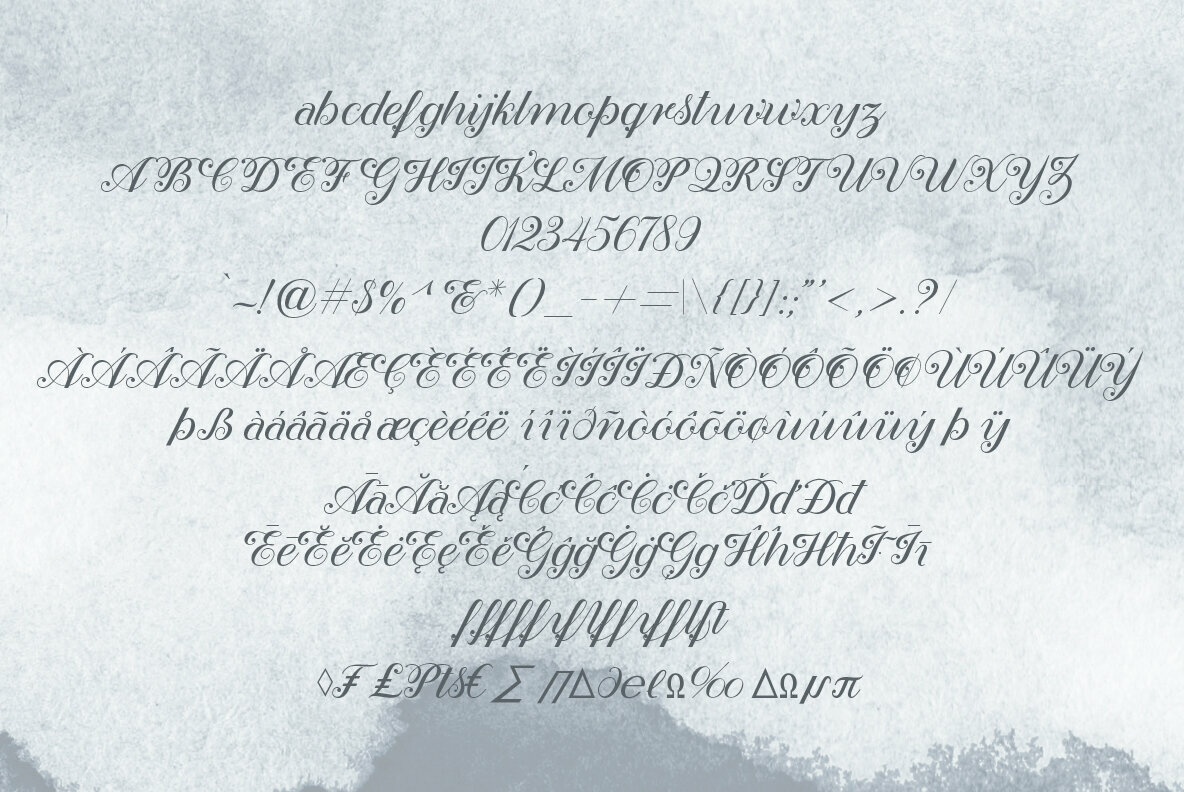 abcdefghijklmopqrstuvwxyz
ABCDEFGHIJKLMOPQRSTUVUXYZ
0123456789
`~!@#$%^&*()_-+=|\{[}]:;"'<,>.?/
ÀÁÂÃÄÅÆÇÈÉÊËÌÍÎÏÐÑÒÓÔÕÖØÙÚÛÜÝ
þß àáâãäåæçèéêë íîï∂ñòóôõöøùúûüý þ ÿ
ĀāĂăĄąĆćĈĉĊċČčĎďĐđ
ĒēĔĕĖėĘęĚěĜĝğĠġĢgĤĥĦħĨĪī
◊₣ ₤₧₨€ ∑ ∏∆∂eℓΩ‰ ∆Ωµπ